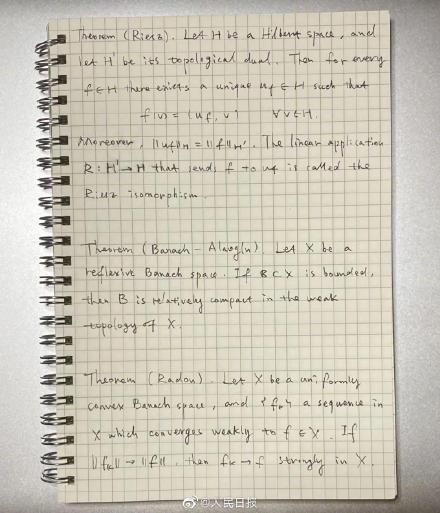 Theorem (Riesz). Let H be a Hilbert space, and
let H' be its topological dual. Then for every
f ∈ H there exists a unique u_f ∈ H such that
f(v) = (u_f, v) ∀v∈H.
Moreover, ||u_f||_H = ||f||_H'. The linear application
R: H' → H that sends f to u_f is called the
Riesz isomorphism.
Theorem (Banach - Alaoglu). Let X be a
reflexive Banach space. If B ⊂ X is bounded,
then B is relatively compact in the weak
topology of X.
Theorem (Radon). Let X be a uniformly
convex Banach space, and {f_k} a sequence in
X which converges weakly to f ∈ X. If
||f_k|| → ||f||, then f_k → f strongly in X.
@人民日报